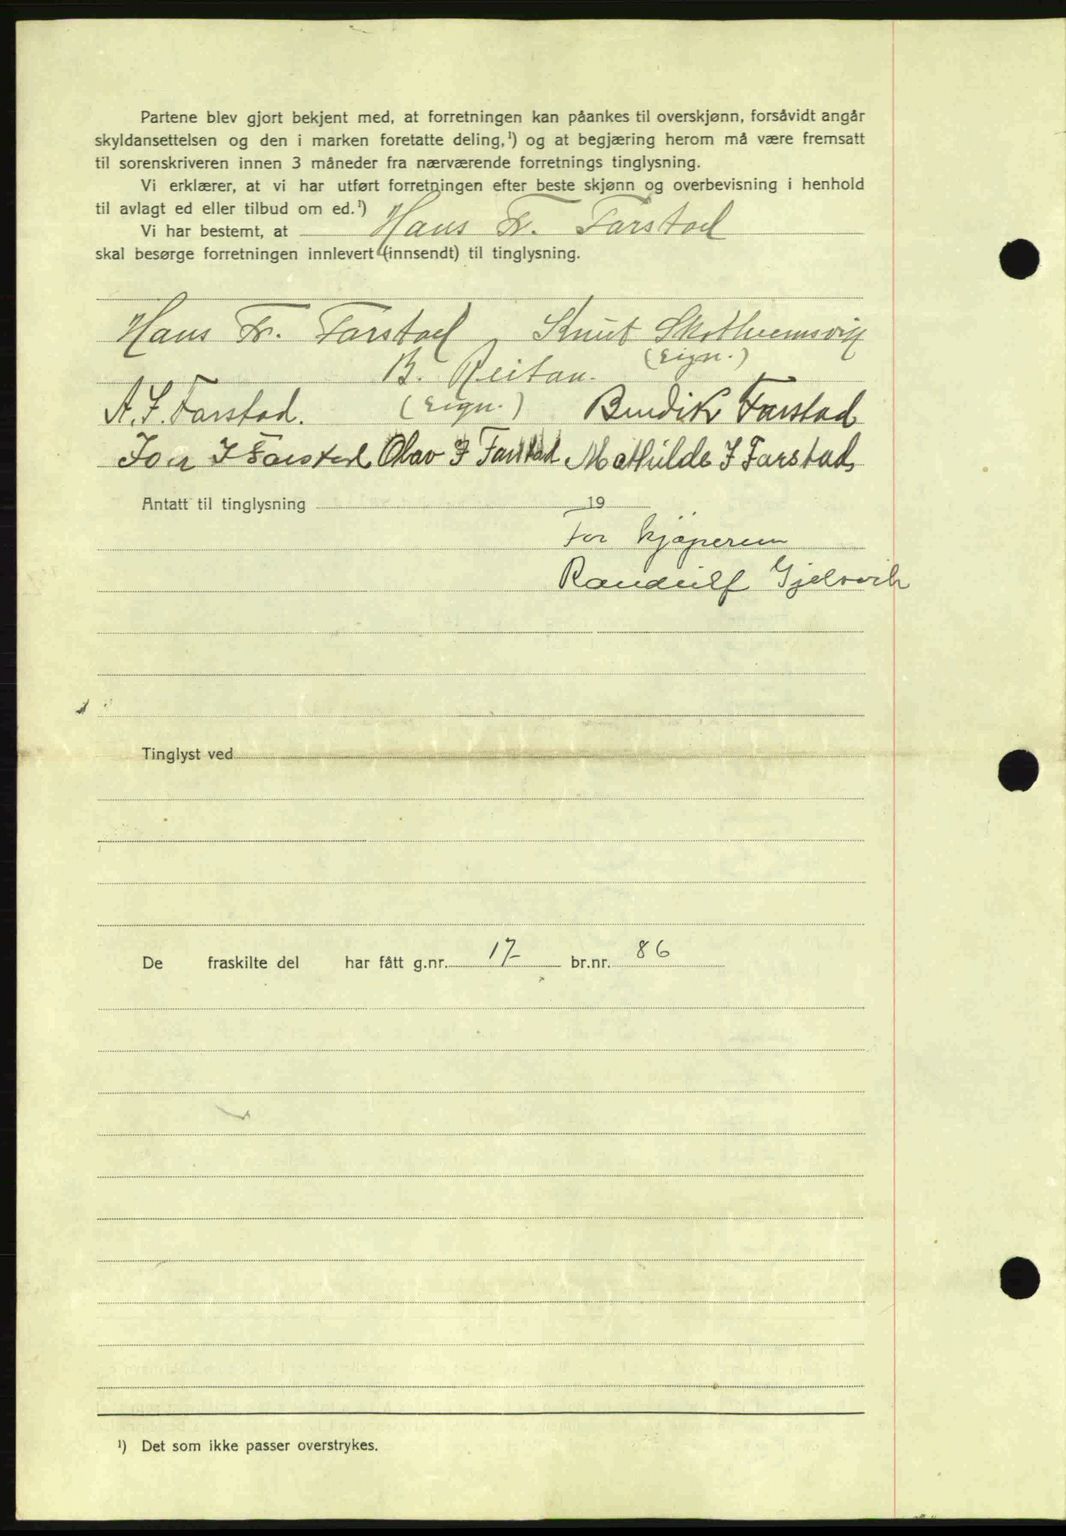 Partene blev gjort bekjent med, at forretningen kan påankes til overskjønn, forsåvidt angår
skyldansettelsen og den i marken foretatte deling,¹) og at begjæring herom må være fremsatt
til sorenskriveren innen 3 måneder fra nærværende forretnings tinglysning.
Vi erklærer, at vi har utført forretningen efter beste skjønn og overbevisning i henhold
til avlagt ed eller tilbud om ed.¹)
Vi har bestemt, at Hans Fr. Farstad
skal besørge forretningen innlevert (innsendt) til tinglysning.
Hans Fr. Farstad Knut Skotheimsvik
(sign.)
B. Reitan.
A. J. Farstad. (sign.) Bendik Farstad
Joa J Farstad Olav J Farstad Mathilde J Farstad
Antatt til tinglysning 19
For kjøperen
Randulf Gjelsvik
Tinglyst ved
De fraskilte del har fått g.nr. 17 br.nr. 86
¹) Det som ikke passer overstrykes.